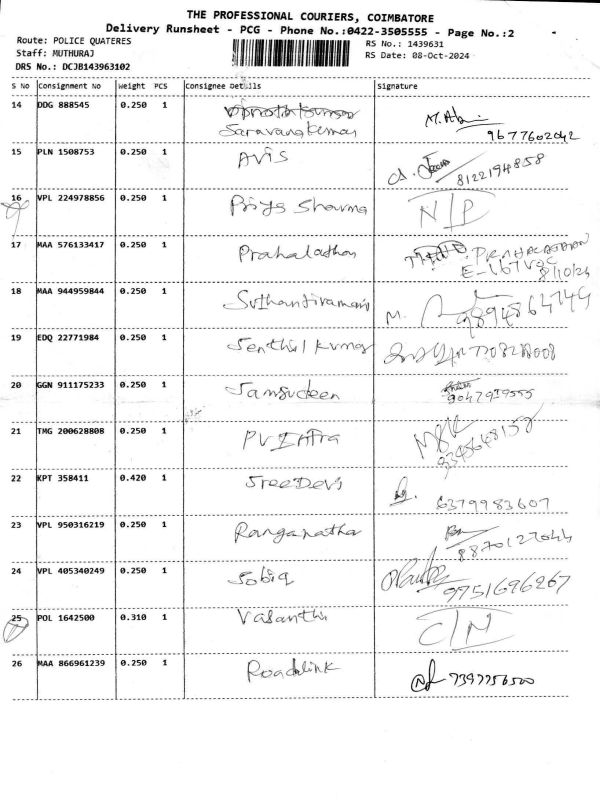 THE PROFESSIONAL COURIERS, COIMBATORE
Delivery Runsheet - PCG - Phone No.:0422-3505555 - Page No.:2
Route: POLICE QUATERES
RS No.: 1439631
Staff: MUTHURAJ
RS Date: 08-Oct-2024
DRS No.: DCJB143963102
S No Consignment No Weight PCS Consignee Details Signature
14 DDG 888545 0.250 1 Saravana Kumar 9677602042
15 PLN 1508753 0.250 1 Avis 8122194858
16 VPL 224978856 0.250 1 Priya Sharma N/P
17 MAA 576133417 0.250 1 Prahalathan PRAHALATHAN
E-167 VOC
8/10/24
18 MAA 944959844 0.250 1 M.
19 EDQ 22771984 0.250 1 Senthil Kumar
20 GGN 911175233 0.250 1 Jamsudeen 9047919555
21 TMG 200628808 0.250 1 PV Infra
22 KPT 358411 0.420 1 SreeDevi 6379983607
23 VPL 950316219 0.250 1 Ranganatha 8870127044
24 VPL 405340249 0.250 1 Sobiq 9751696267
25 POL 1642500 0.310 1 Vasanthi C/N
26 MAA 866961239 0.250 1 Roadlink 7397756500